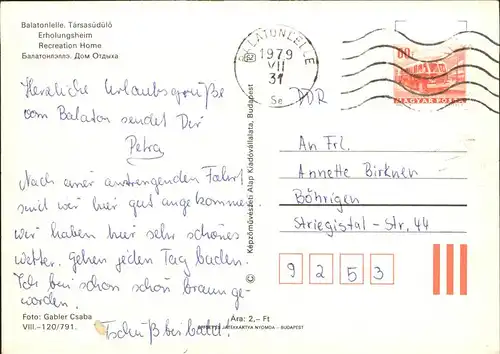 Balatonlelle. Társasüdülő
Erholungsheim
Recreation Home
Балатонлэллэ. Дом Отдыха
Herzliche Urlaubsgrüße
vom Balaton sendet Dir
Petra
Nach einer anstrengenden Fahrt
sind wir hier gut angekommen.
wir haben hier sehr schönes
wetter. Gehen jeden Tag baden.
Ich bin schon schön braun ge-
worden.
Tschüß bis bald!
Foto: Gabler Csaba
VIII.–120/791.
Ára: 2,– Ft
JÁTÉKKÁRTYA NYOMDA – BUDAPEST
© Képzőművészeti Alap Kiadóvállalata, Budapest
BALATONLELLE
1979
VII
31
DDR
60f
MAGYAR POSTA
An Frl.
Annette Birkner
Böhrigen
Striegistal-Str. 44
9 2 5 3